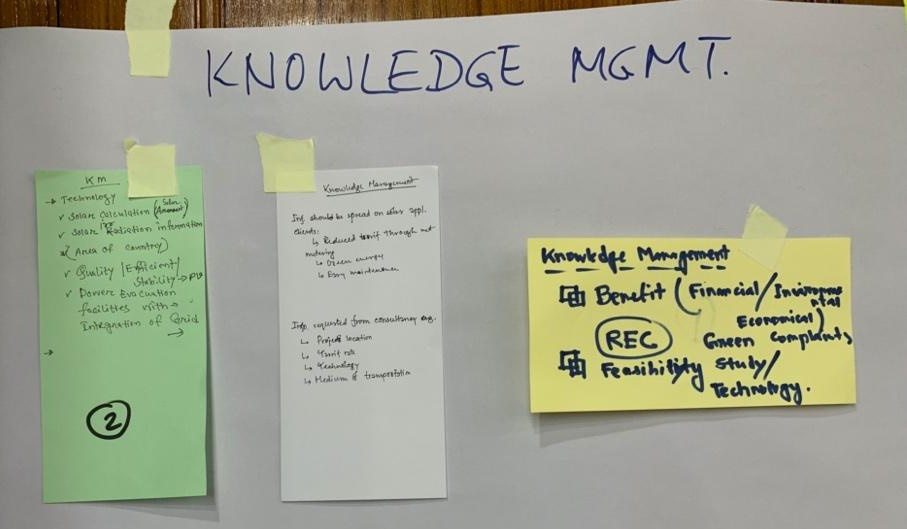 KNOWLEDGE MGMT.
KM
→ Technology
✓ Solar Calculation (Solar
✓ Solar Radiation information
(Area of Country)
✓ Quality / Efficient /
Stability → PV
✓ Power Evacuation
facilities with →
Integration of Grid
→
→
2
Knowledge Management
Inf. should be spread on solar appl.
clients:
↳ Reduced tarrif through net
metering
↳ Green energy
↳ Easy maintenance
Info. requested from consultancy
↳ Project location
↳ Tarrif rate
↳ Technology
↳ Medium of transportation
Knowledge Management
Benefit (Financial / Invironme
ntal
Economical)
REC Green complaints
Feasibility Study /
Technology.